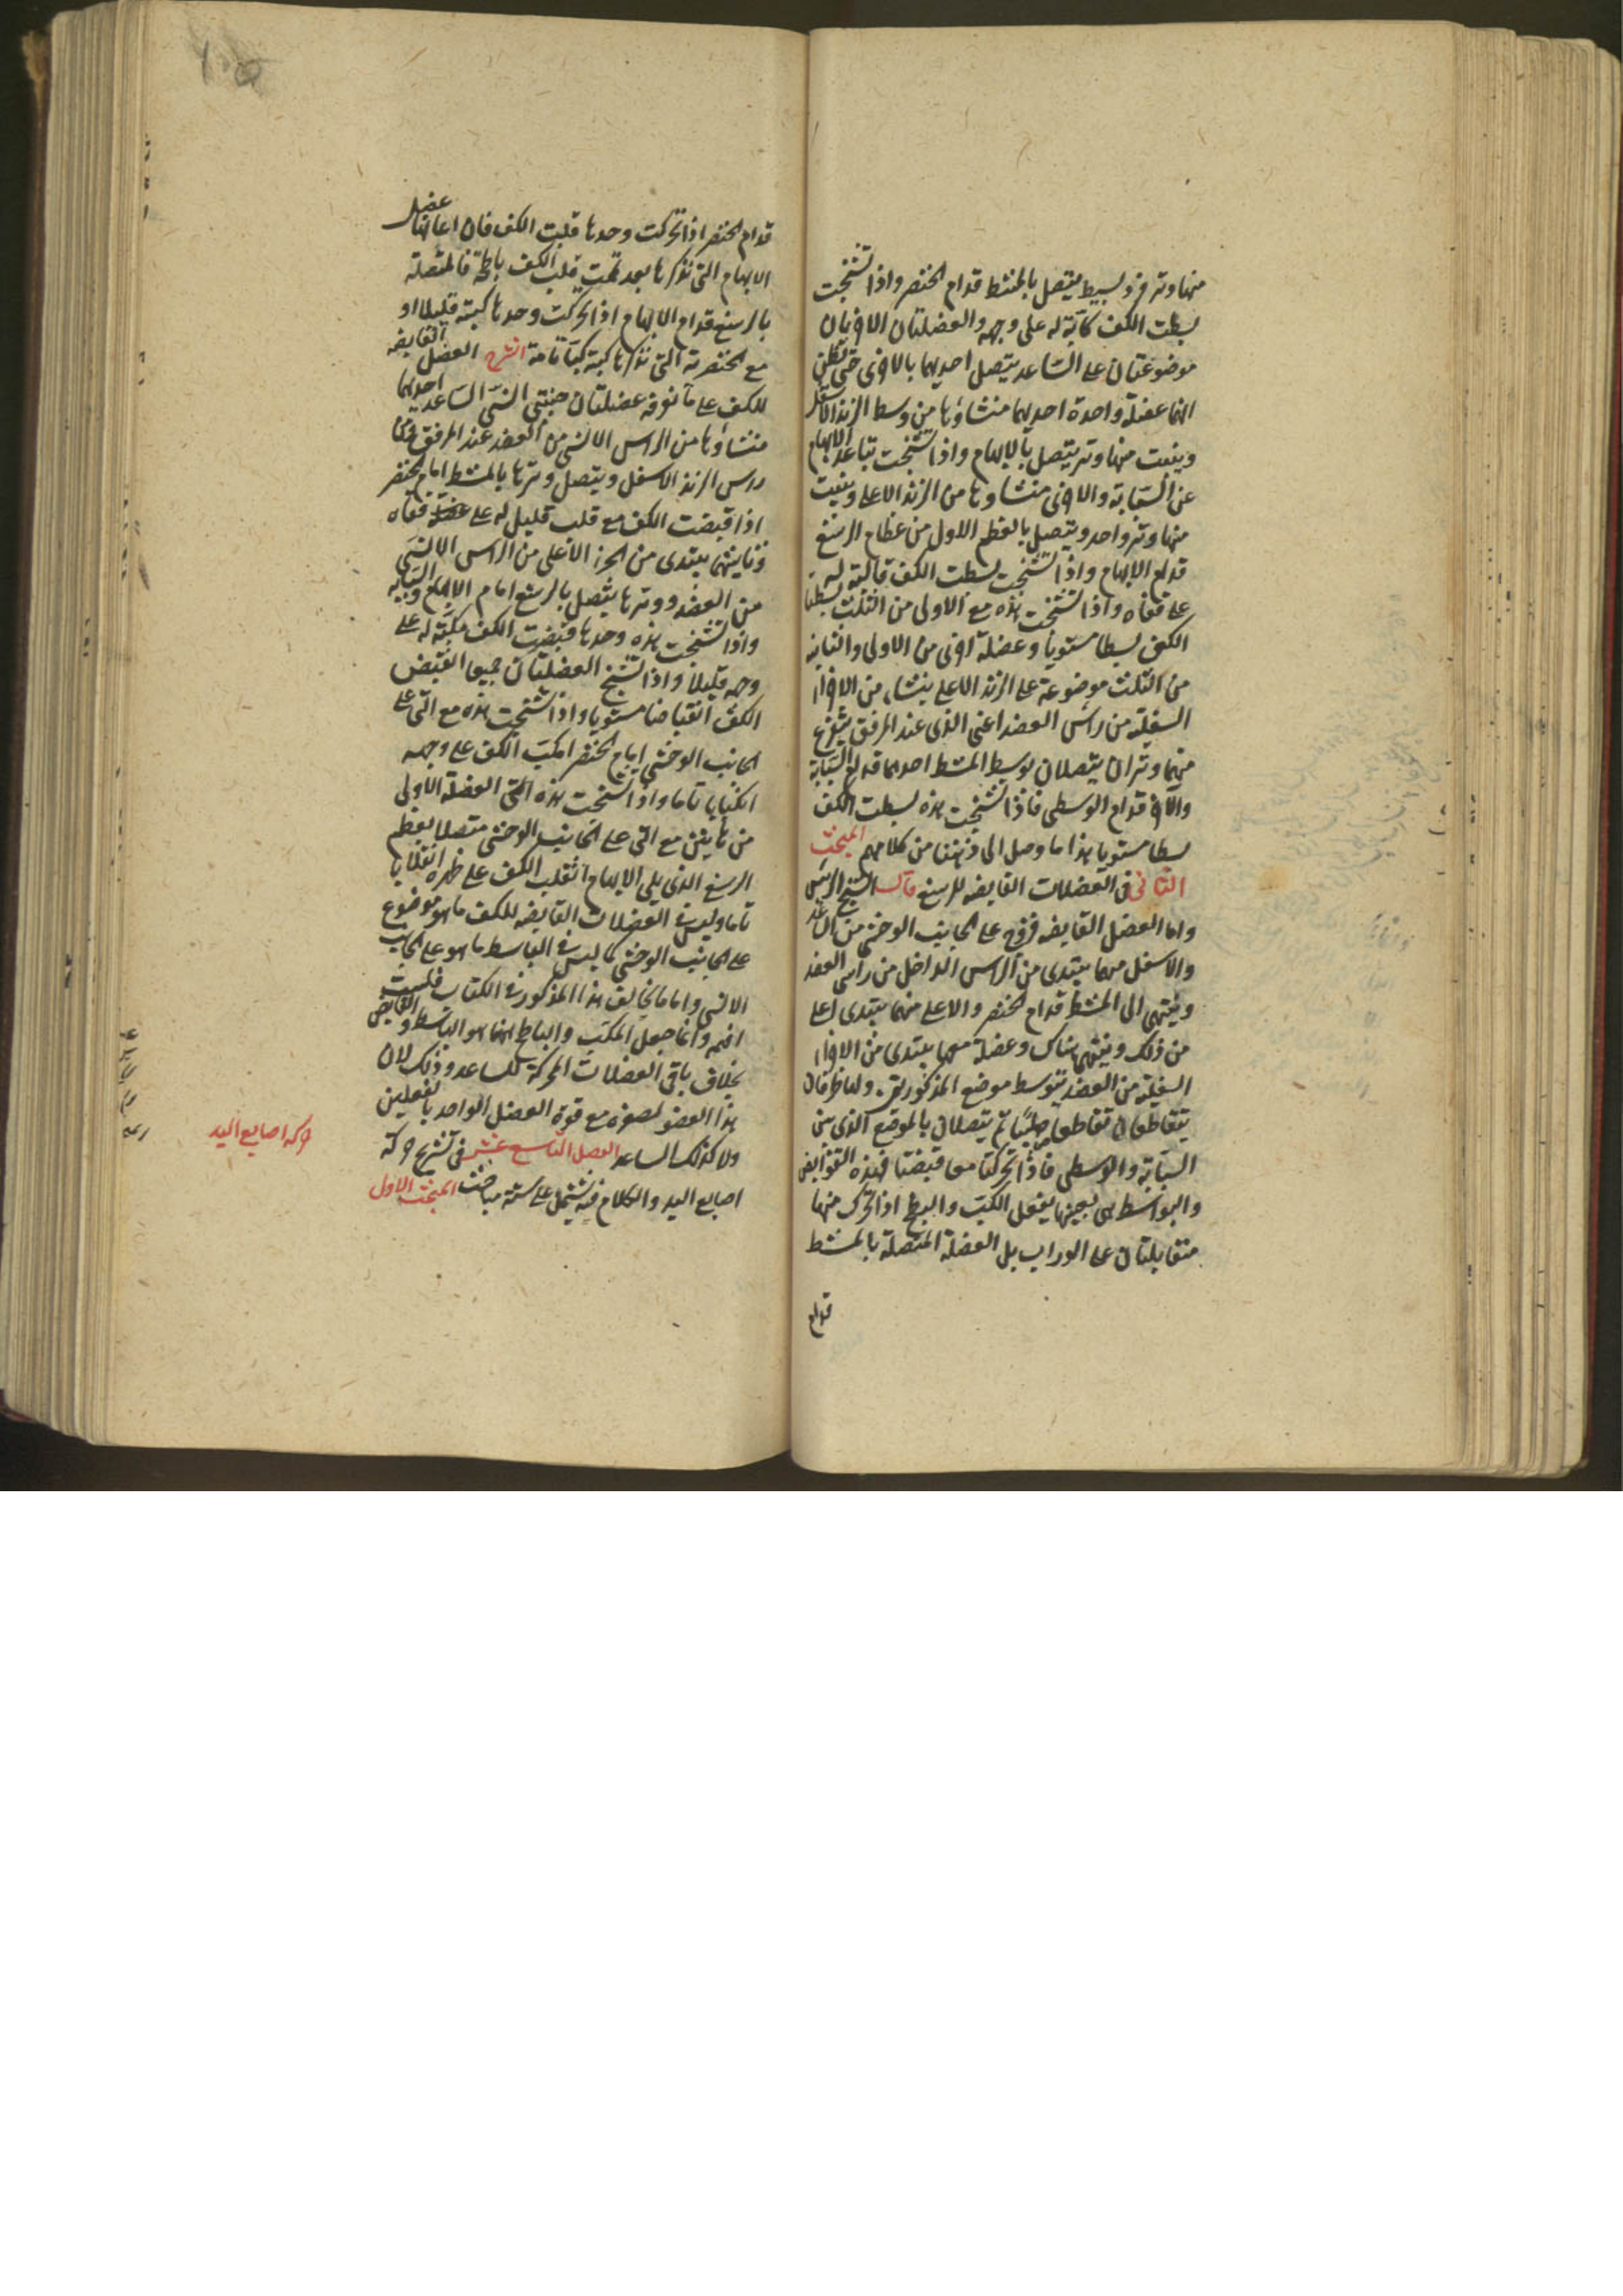 منها وتر فرد بسيط يتصل بالمشط قدام الخنصر واذا تشنجت
بسطت الكف كابة له على وجهه والعضلتان الاخريان
موضوعتان على الساعد يتصل احديهما بالاخرى حتى يظن
انها عضلة واحدة احديهما منشاؤها من وسط الزند الاسفل
وينبت منها وتر يتصل بالابهام واذا تشنجت تباعد الابهام
عن السبابة والاخرى منشاوها من الزند الاعلى وينبت
منها وتر واحد ويتصل بالعظم الاول من عظام الرسغ
قدام الابهام واذا تشنجت بسطت الكف قالبة له
على قفاه واذا تشنجت هذه مع الاولى من الثلث بسطتا
الكف بسطا مستويا وعضلة اخرى من الاولى والثانية
من الثلث موضوعة على الزند الاعلى ينشاء من الاجزاء
السفلية من راس العضد اعنى الذى عند المرفق يتفرع
منها وتران يتصلان بوسط المشط احدهما قدام السبابة
والآخر قدام الوسطى فاذا تشنجت هذه بسطت الكف
بسطا مستويا هذا ما وصل الى ذهننا من كلامهم المبحث
الثانى فى العضلات القابضه للرسغ قال الشيخ الرئيس
واما العضل القابضه فزوج على الجانب الوحشى من الساعد
والاسفل منهما يبتدى من الراس الداخل من راس العضد
وينتهى الى المشط قدام الخنصر والاعلى منهما يبتدى اعلى
من ذلك وينتهى هناك وعضلة معها يبتدى من الاجزاء
السفلية من العضد يتوسط موضع المذكورتين ولها طرفان
يتقاطعان تقاطعا صليبيا ثم يتصلان بالموضع الذى بين
السبابة والوسطى فاذا تحركتا معا قبضتا فهذه القوابض
والبواسط هى بعينها يفعل الكب والبطح اذا تحرك منها
متقابلتان على الوراب بل العضلة المتصلة بالمشط
قدام
قدام الخنصر اذا تحركت وحدها قلبت الكف فان اعانها عضل
الابهام التى نذكرها بعد تمت قلب الكف باطحة فالمتصلة
بالرسغ قدام الابهام اذا تحركت وحدها كبته قليلا او
مع الخنصرية التى نذكرها كبته كبا تامة الشرح العضل القابضه
للكف على ما نوفه عضلتان جنبتى انسى الساعد احديهما
منشاؤها من الراس الانسى من العضد عند المرفق
راس الزند الاسفل ويتصل وترها بالمشط امام الخنصر
اذا قبضت الكف مع قلب قليل له على قفاه
وثانيتهما يبتدى من الجزء الاعلى من الراس الانسى
من العضد ووترها يتصل بالرسغ امام الابهام والسبابه
واذا تشنجت هذه وحدها قبضت الكف مكبته له على
وجهه قليلا واذا تشنج العضلتان جميعا انقبض
الكف انقباضا مستويا واذا تشنجت هذه مع التى على
الجانب الوحشى امام الخنصر انكب الكف على وجهه
انكبابا تاما واذا تشنجت هذه التى العضلة الاولى
من هاتين مع التى على الجانب الوحشى متصلا بعظم
الرسغ الذى يلى الابهام انقلب الكف على ظهره انقلابا
تاما وليس فى العضلات القابضه للكف ما هو موضوع
على الجانب الوحشى كما ليس فى الباسط ما هو على الجانب
الانسى واما ما يخالف هذا المذكور فى الكتاب فلست
افهمه وانما جعل المكب والباطح ههنا هو الباسط والقابض
بخلاف باقى العضلات المحركة للساعد وذلك لان
هذا العضو لصغره مع قوة العضل الواحد بالفعلين
ولا كذلك الساعد الفصل التاسع عشر فى تشريح حركة
اصابع اليد والكلام فيه يشتمل على ستة مباحث المبحث الاول
حركة اصابع اليد